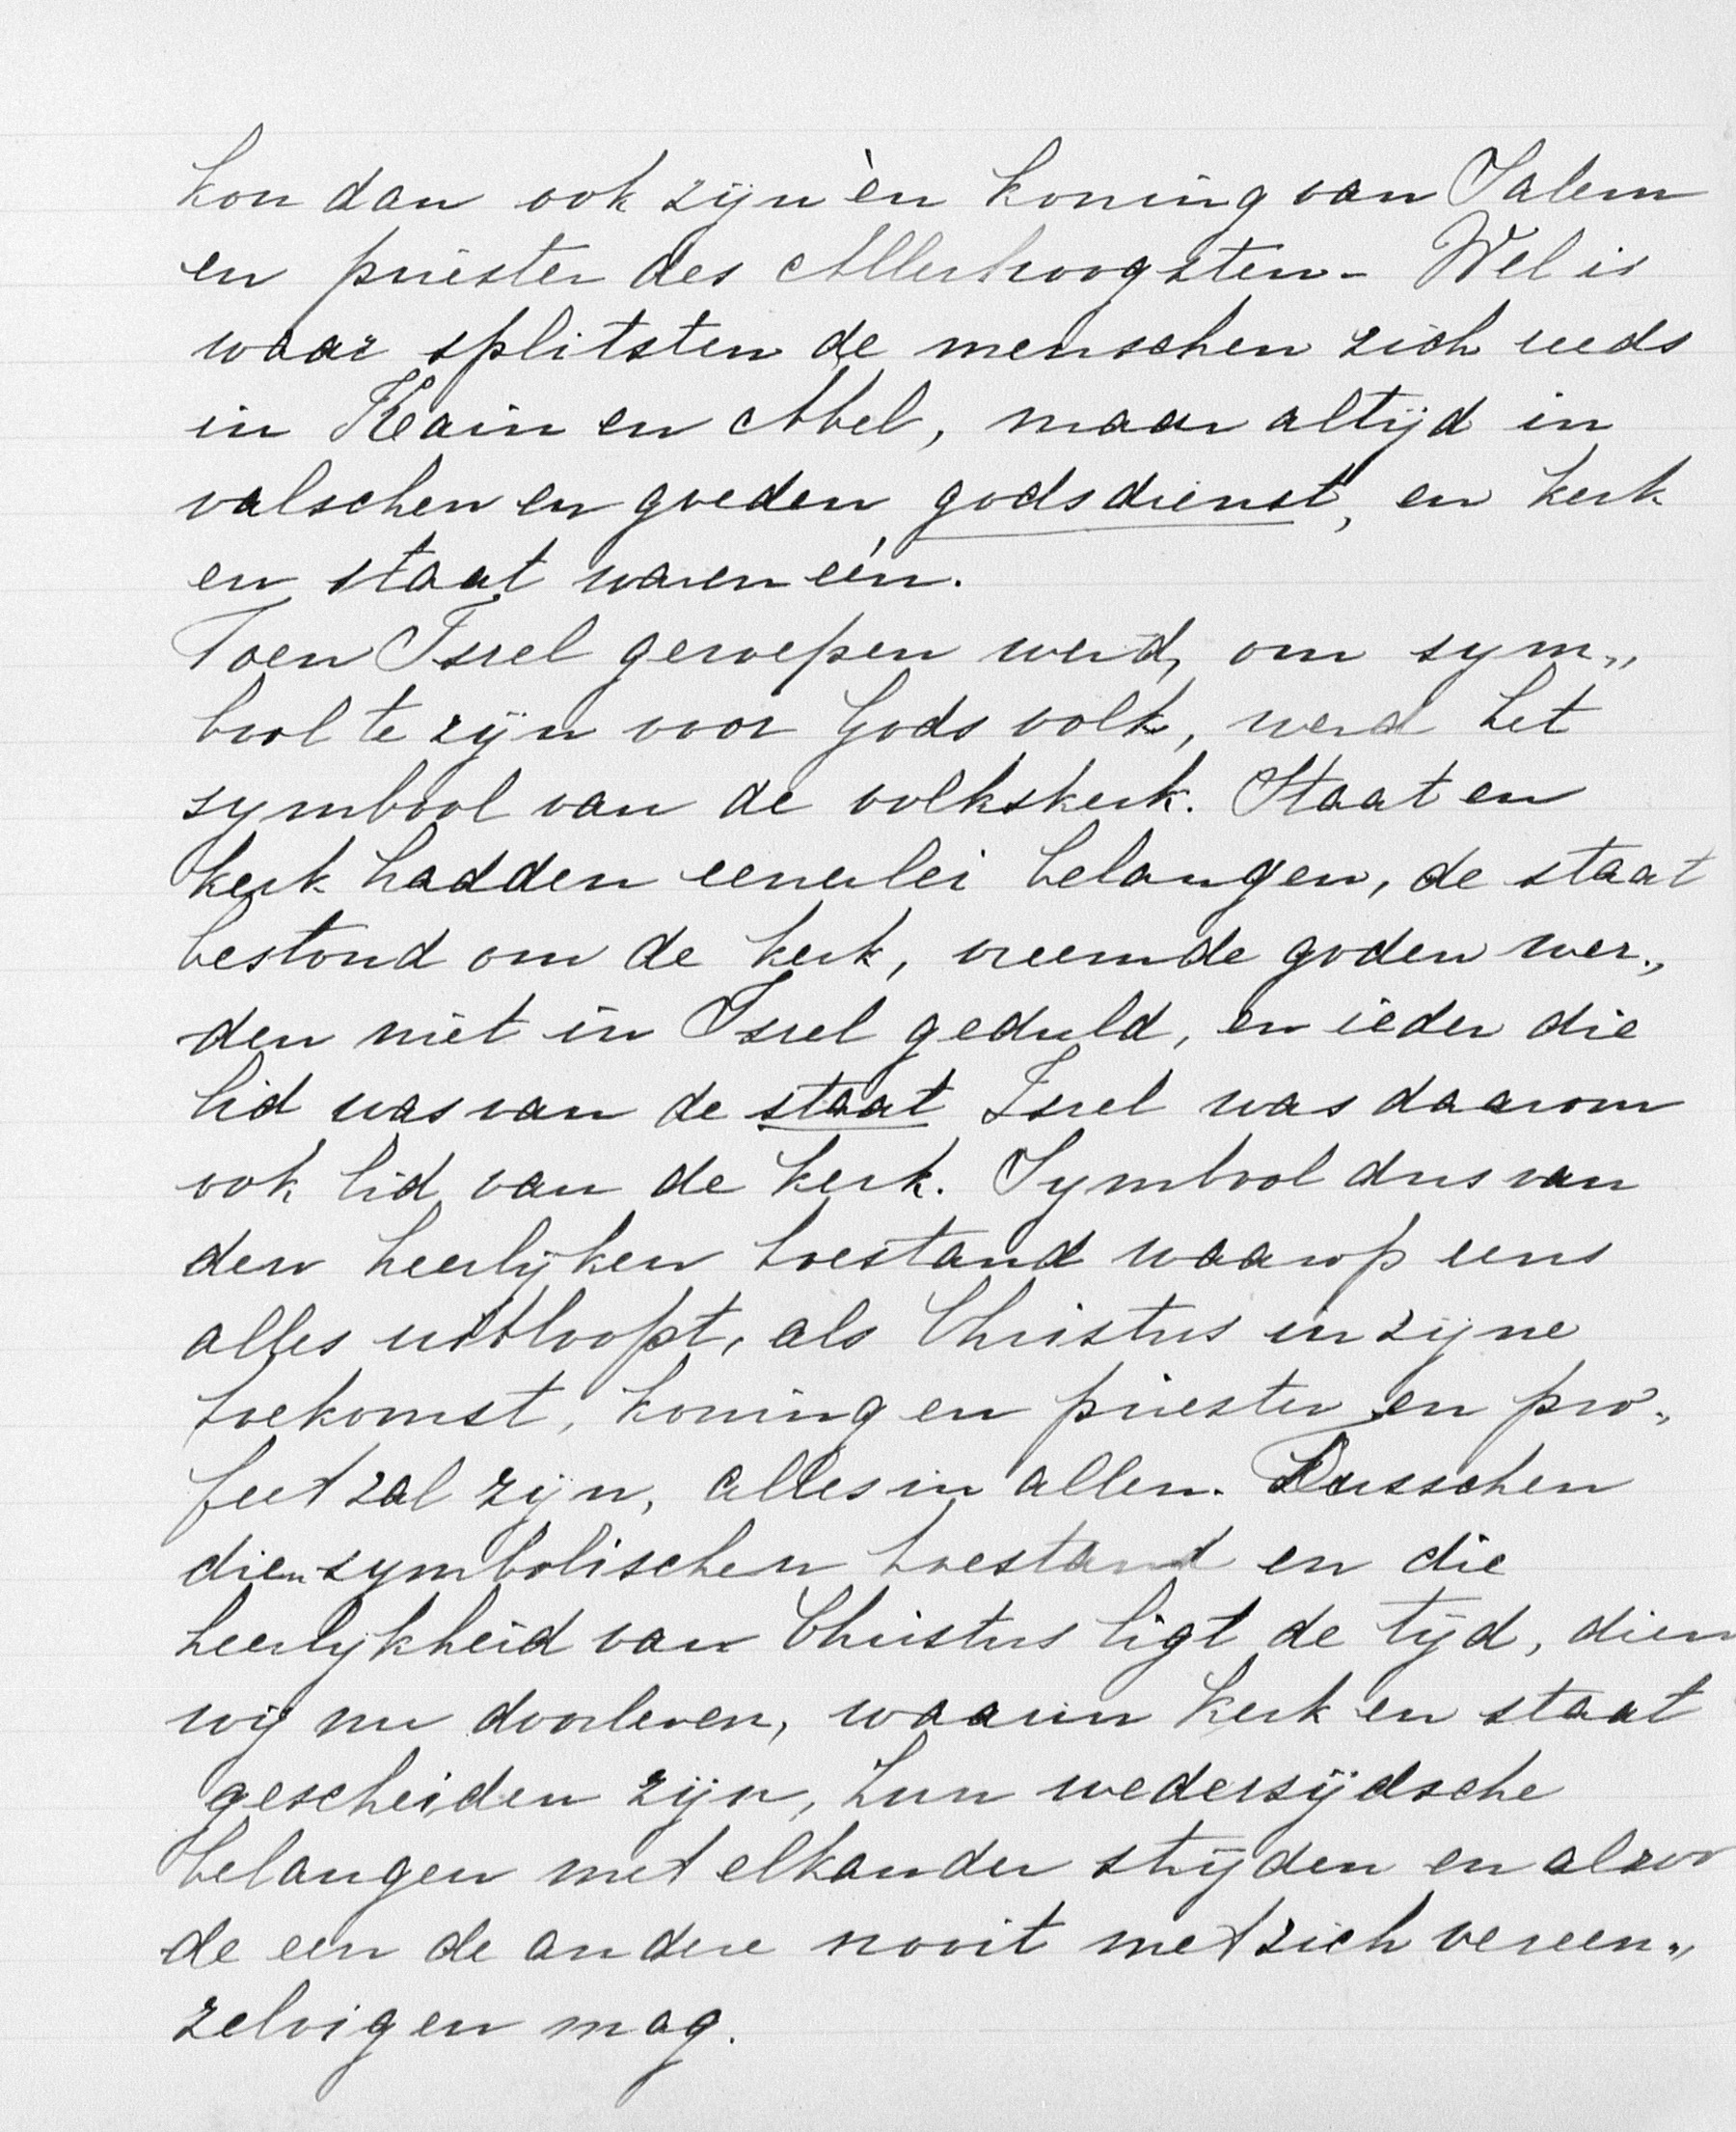 kon dan ook zijn èn koning van Salem
en priester des Allerhoogsten - Wel is
waar splitsten de menschen zich reeds
in Kain en Abel, maar altijd in
valschen en goeden godsdienst, en kerk
en staat waren eén.
Toen Isrel geroepen werd, om sym„
bool te zijn voor Gods volk, werd het
symbool van de volkskerk. Staat en
kerk hadden eenerlei belangen, de staat
bestond om de kerk, vreemde goden wer„
den niet in Isrel geduld, en ieder die
lid was van de staat Isrel was daarom
ook lid van de kerk. Symbool dus van
den heerlijken toestand waarop eens
alles uitloopt, als Christus in zijne
toekomst, koning en priester en pro„
feet zal zijn, alles in allen. Tusschen
dien symbolischen toestand en die
heerlijkheid van Christus ligt de tijd, dien
wij nu doorleven, waarin kerk en staat
gescheiden zijn, hun wederzijdsche
belangen met elkander strijden en alzoo
de een de andere nooit met zich vereen„
zelvigen mag.